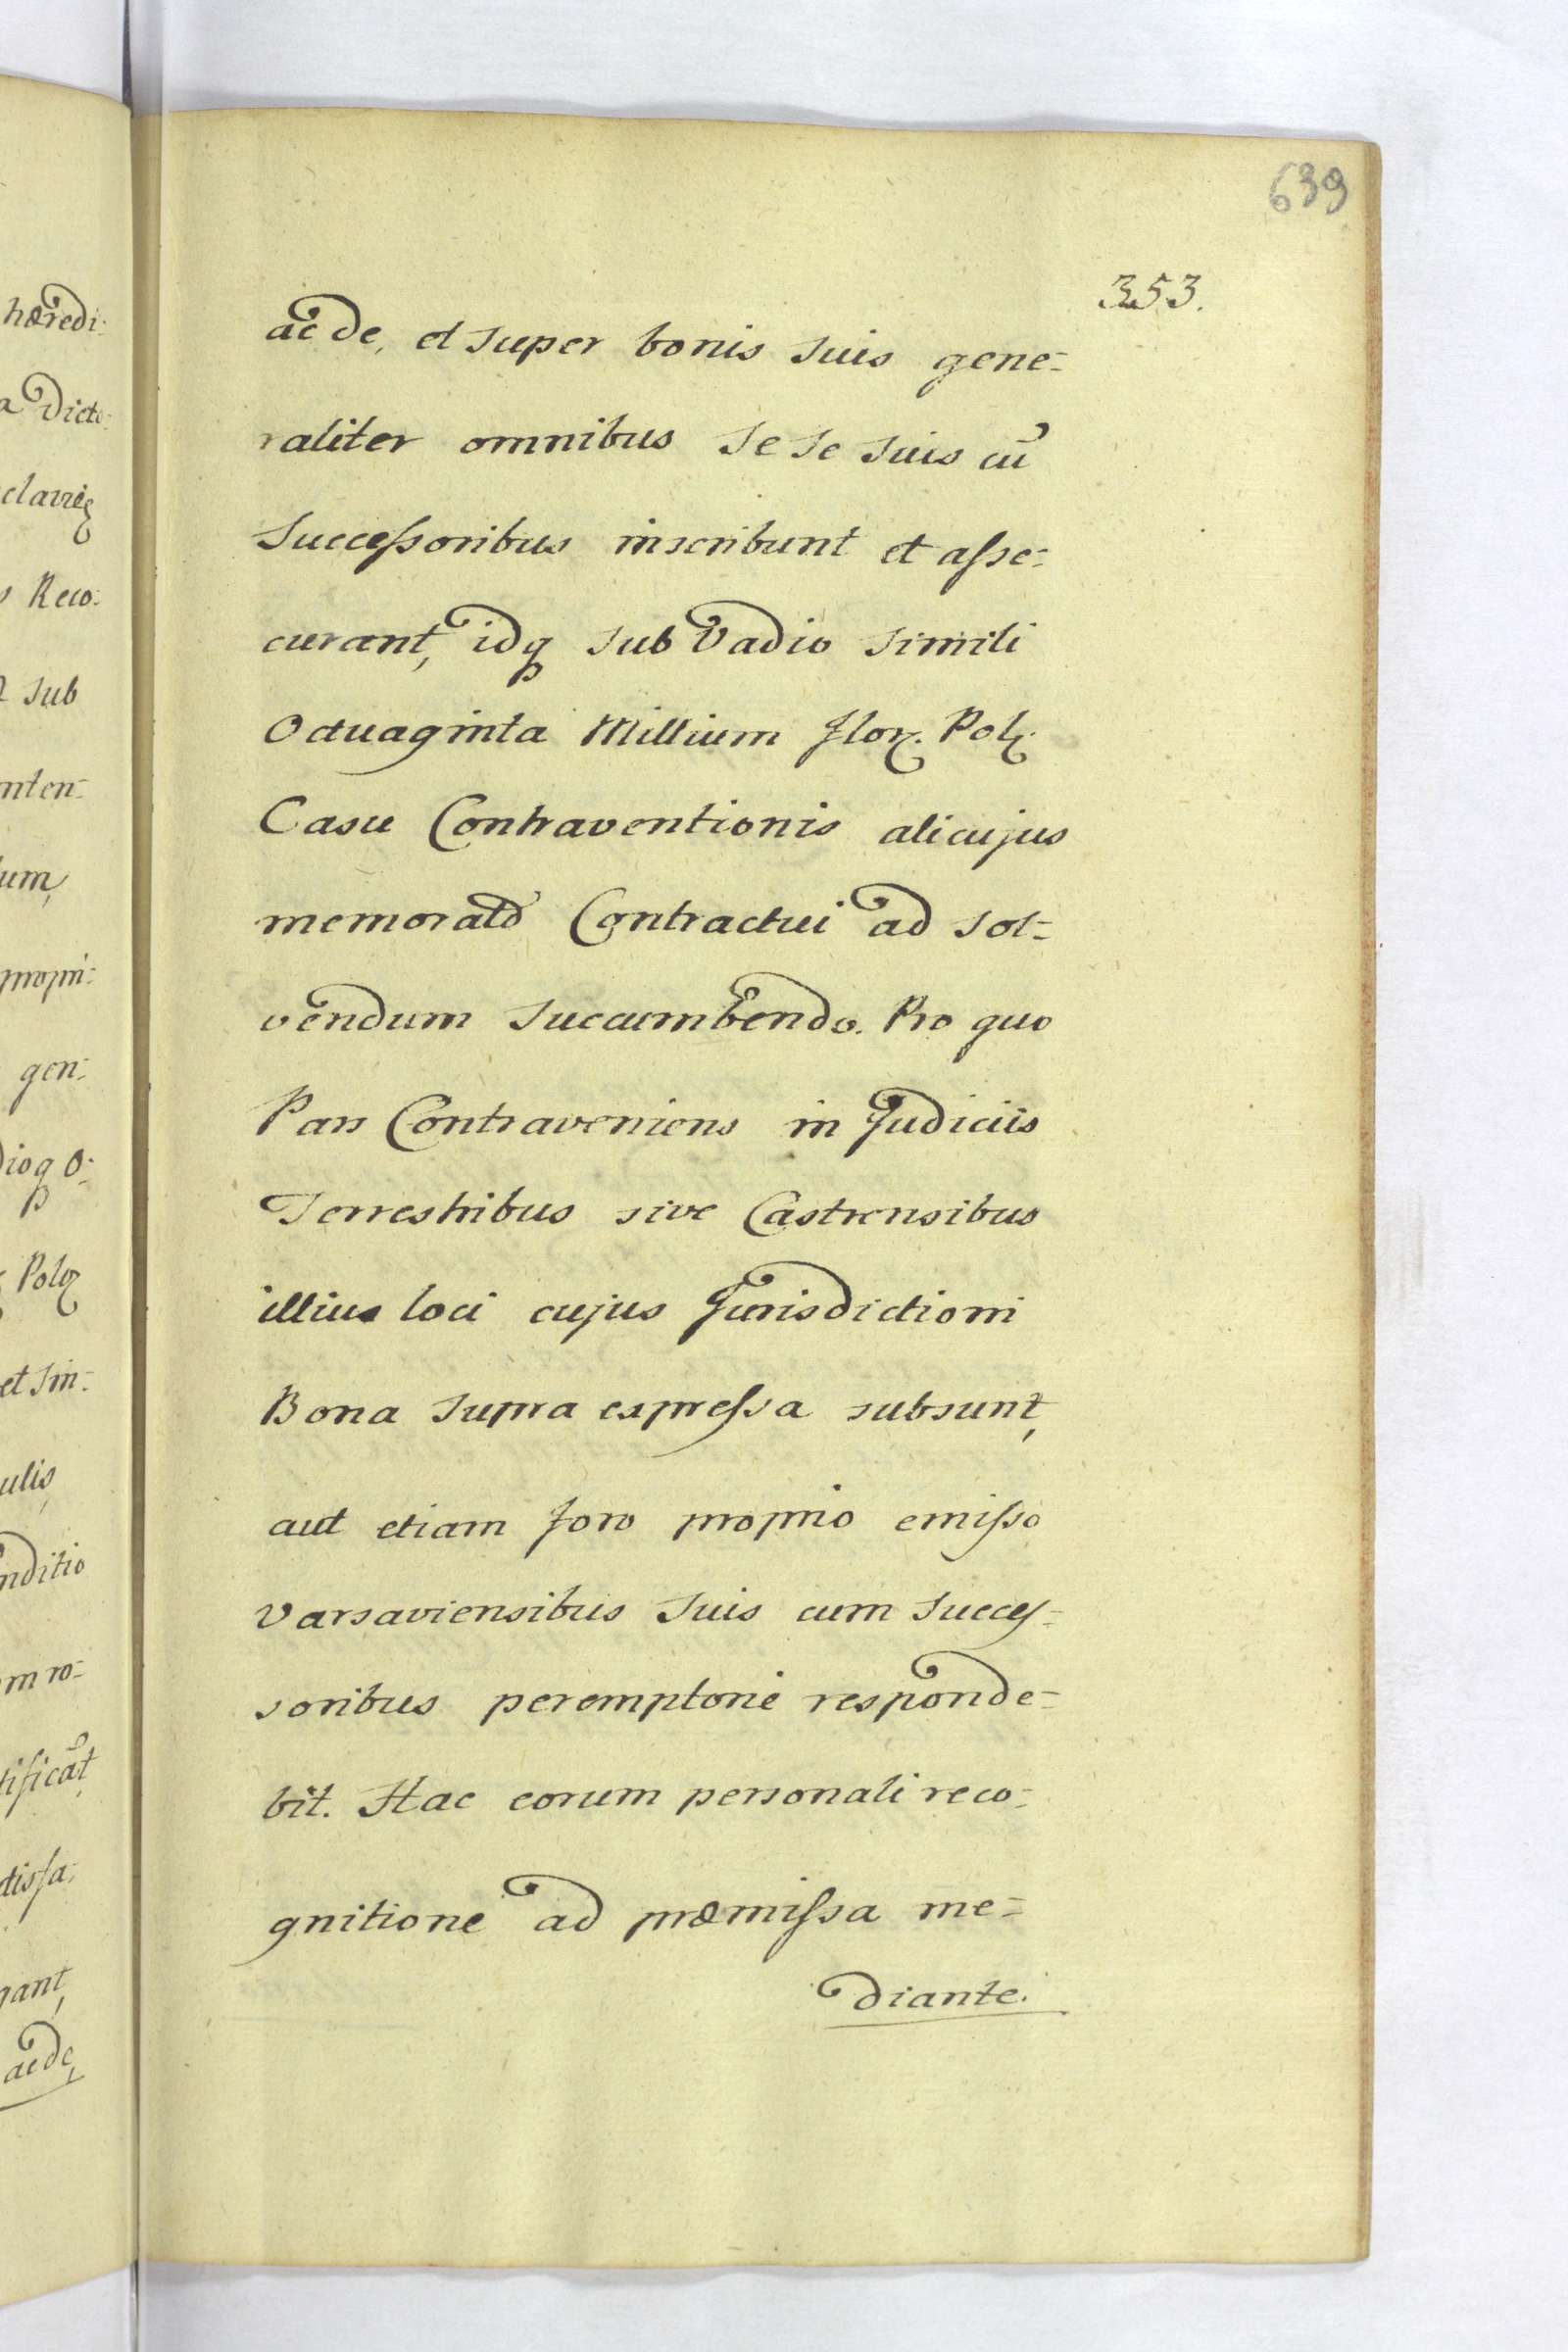 639
353.
ac de, et super bonis suis gene-
raliter omnibus se se suis cũ
Successoribus inscribunt et asse-
curant, idq sub Vadio simili
Octuaginta Millium flor. Pol.
Casu Contraventionis alicujus
memorato Contractui ad sol-
vendum succumbendo. Pro quo
Pars Contraveniens in Judiciis
Terrestribus sive Castrensibus
illius loci cujus Jurisdictioni
Bona supra expressa subsunt,
aut etiam foro proprio emisso
Varsaviensibus suis cum Succes-
soribus peremptorie responde-
bit. Hac eorum personali reco-
gnitione ad præmissa me-
diante.
hæredi-
Dicto-
Reco-
sub
nten-
um,
propri-
gen-
dioq o-
Polo
et sin-
ulis,
nditio
m ro-
tificãt,
tisfa-
gant,
ac de,